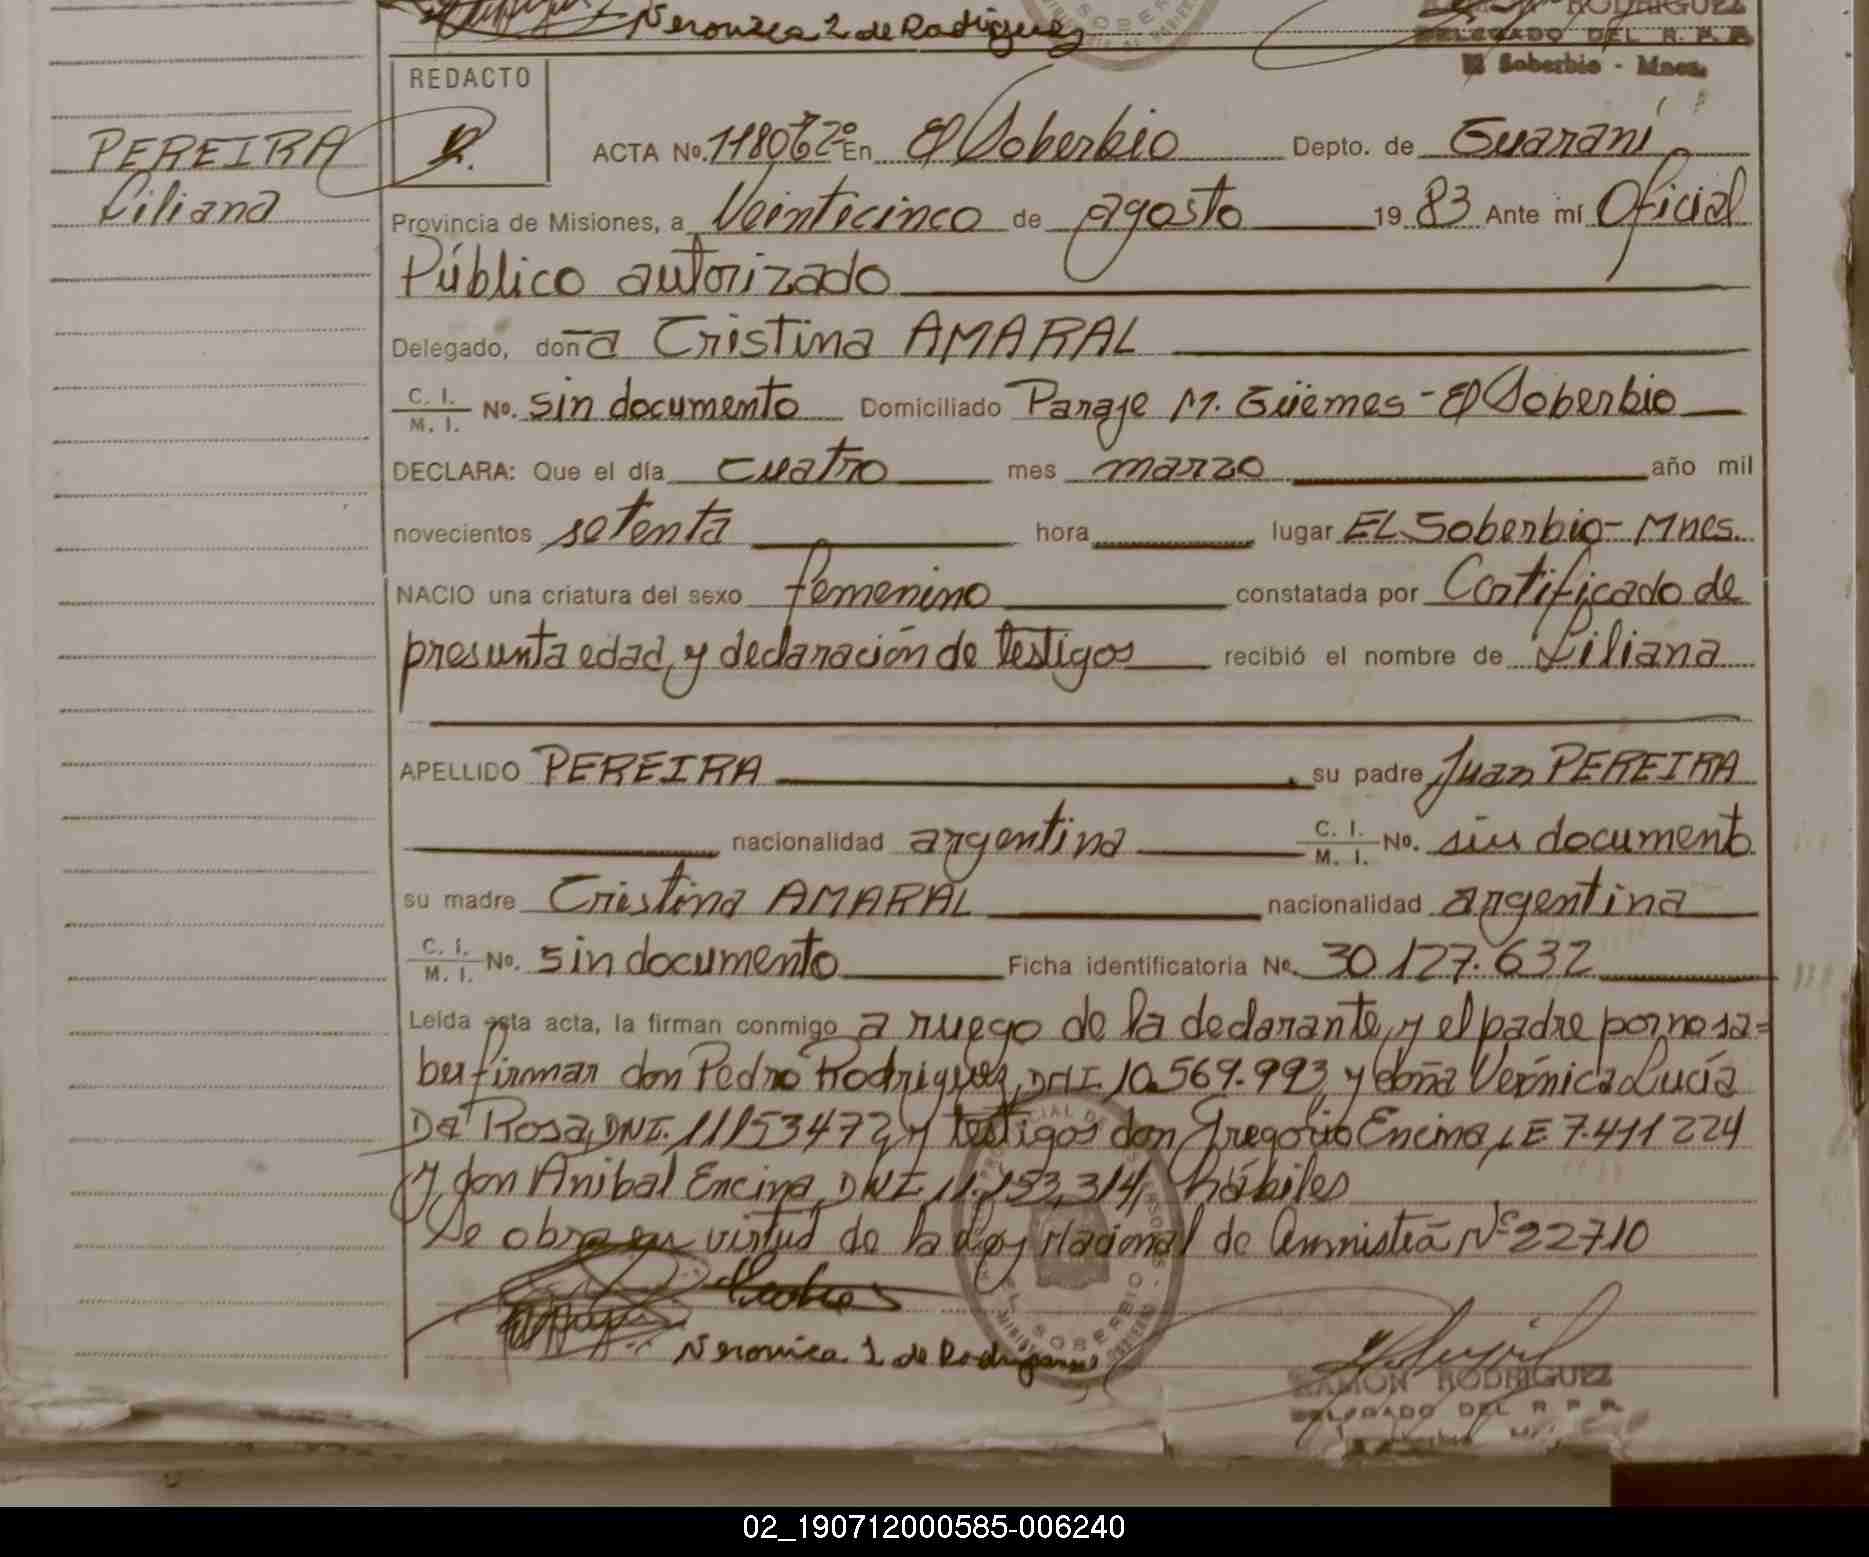 Veronica L de Rodriguez
RODRIGUEZ
DELEGADO DEL R. P. P.
El Soberbio - Mnes.
REDACTO
PEREIRA
Liliana
ACTA No. En El Soberbio Depto. de Guaraní
Provincia de Misiones, a Veinticinco de agosto 19 83 Ante mí Oficial
Público autorizado
Delegado, doña Cristina AMARAL
C. I. / M. I. No. sin documento Domiciliado Paraje M. Güemes - El Soberbio
DECLARA: Que el día cuatro mes marzo año mil
novecientos setenta hora lugar EL Soberbio - Mnes.
NACIO una criatura del sexo femenino constatada por Certificado de
presunta edad, y declaración de testigos recibió el nombre de Liliana
APELLIDO PEREIRA su padre Juan PEREIRA
nacionalidad argentina C. I. / M. I. No. sin documento
su madre Cristina AMARAL nacionalidad argentina
C. I. / M. I. No. sin documento Ficha identificatoria No. 30.127.632
Leída esta acta, la firman conmigo a ruego de la declarante, y el padre por no sa=
ber firmar don Pedro Rodriguez, DNI. 10.569.993, y doña Verónica Lucía
Da Rosa, DNI. 11153472, y testigos don Gregorio Encina, L.E. 7.411224
y don Anibal Encina, DNI. 11.153.314, hábiles
Se obra en virtud de la Ley Nacional de Amnistía Nº 22710
EL SOBERBIO
Veronica L de Rodriguez
RAMON RODRIGUEZ
DELEGADO DEL R. P. P.
02_190712000585-006240